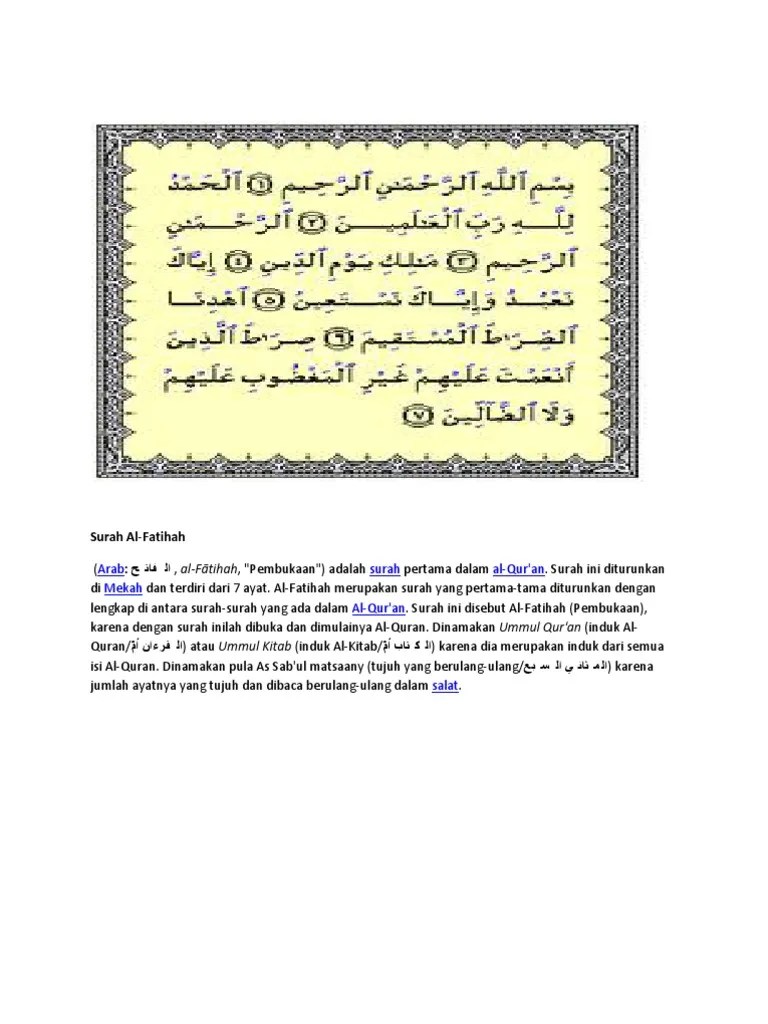 بِسْمِ ٱللَّهِ ٱلرَّحْمَـٰنِ ٱلرَّحِيمِ ١ ٱلْحَمْدُ
لِلَّهِ رَبِّ ٱلْعَـٰلَمِيـــنَ ٢ ٱلرَّحْمَـٰنِ
ٱلرَّحِيمِ ٣ مَـٰلِكِ يَوْمِ ٱلدِّينِ ٤ إِيَّاكَ
نَعْبُدُ وَإِيَّاكَ نَسْتَعِينُ ٥ ٱهْدِنَا
ٱلصِّرَٰطَ ٱلْمُسْتَقِيمَ ٦ صِرَٰطَ ٱلَّذِينَ
أَنْعَمْتَ عَلَيْهِمْ غَيْرِ ٱلْمَغْضُوبِ عَلَيْهِمْ
وَلَا ٱلضَّآلِّينَ ٧
Surah Al-Fatihah
(Arab: الـ فاتـ ح , al-Fātihah, "Pembukaan") adalah surah pertama dalam al-Qur'an. Surah ini diturunkan
di Mekah dan terdiri dari 7 ayat. Al-Fatihah merupakan surah yang pertama-tama diturunkan dengan
lengkap di antara surah-surah yang ada dalam Al-Qur'an. Surah ini disebut Al-Fatihah (Pembukaan),
karena dengan surah inilah dibuka dan dimulainya Al-Quran. Dinamakan Ummul Qur'an (induk Al-
Quran/أمّ الـ قرءان) atau Ummul Kitab (induk Al-Kitab/أمّ الـ كـ تاب) karena dia merupakan induk dari semua
isi Al-Quran. Dinamakan pula As Sab'ul matsaany (tujuh yang berulang-ulang/الـ سـ بع الـ مـ ثانـ ي) karena
jumlah ayatnya yang tujuh dan dibaca berulang-ulang dalam salat.